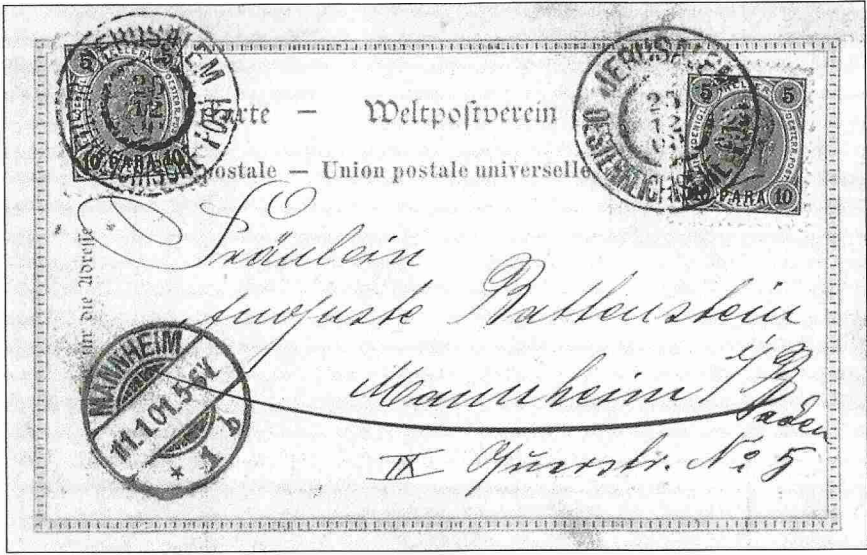 JERUSALEM
OESTERREICHISCHE POST
5 5
10 PARA 10
JERUSALEM
OESTERREICHISCHE POST
5 HELLER 5
10 PARA 10
Karte — Weltpostverein
postale — Union postale universelle
Nur für die Adresse
Fräulein
Auguste Battenstein
Mannheim i/B
Baden
IX Querstr. No 5
MANNHEIM
11.1.01.5-6V.
* 1 b